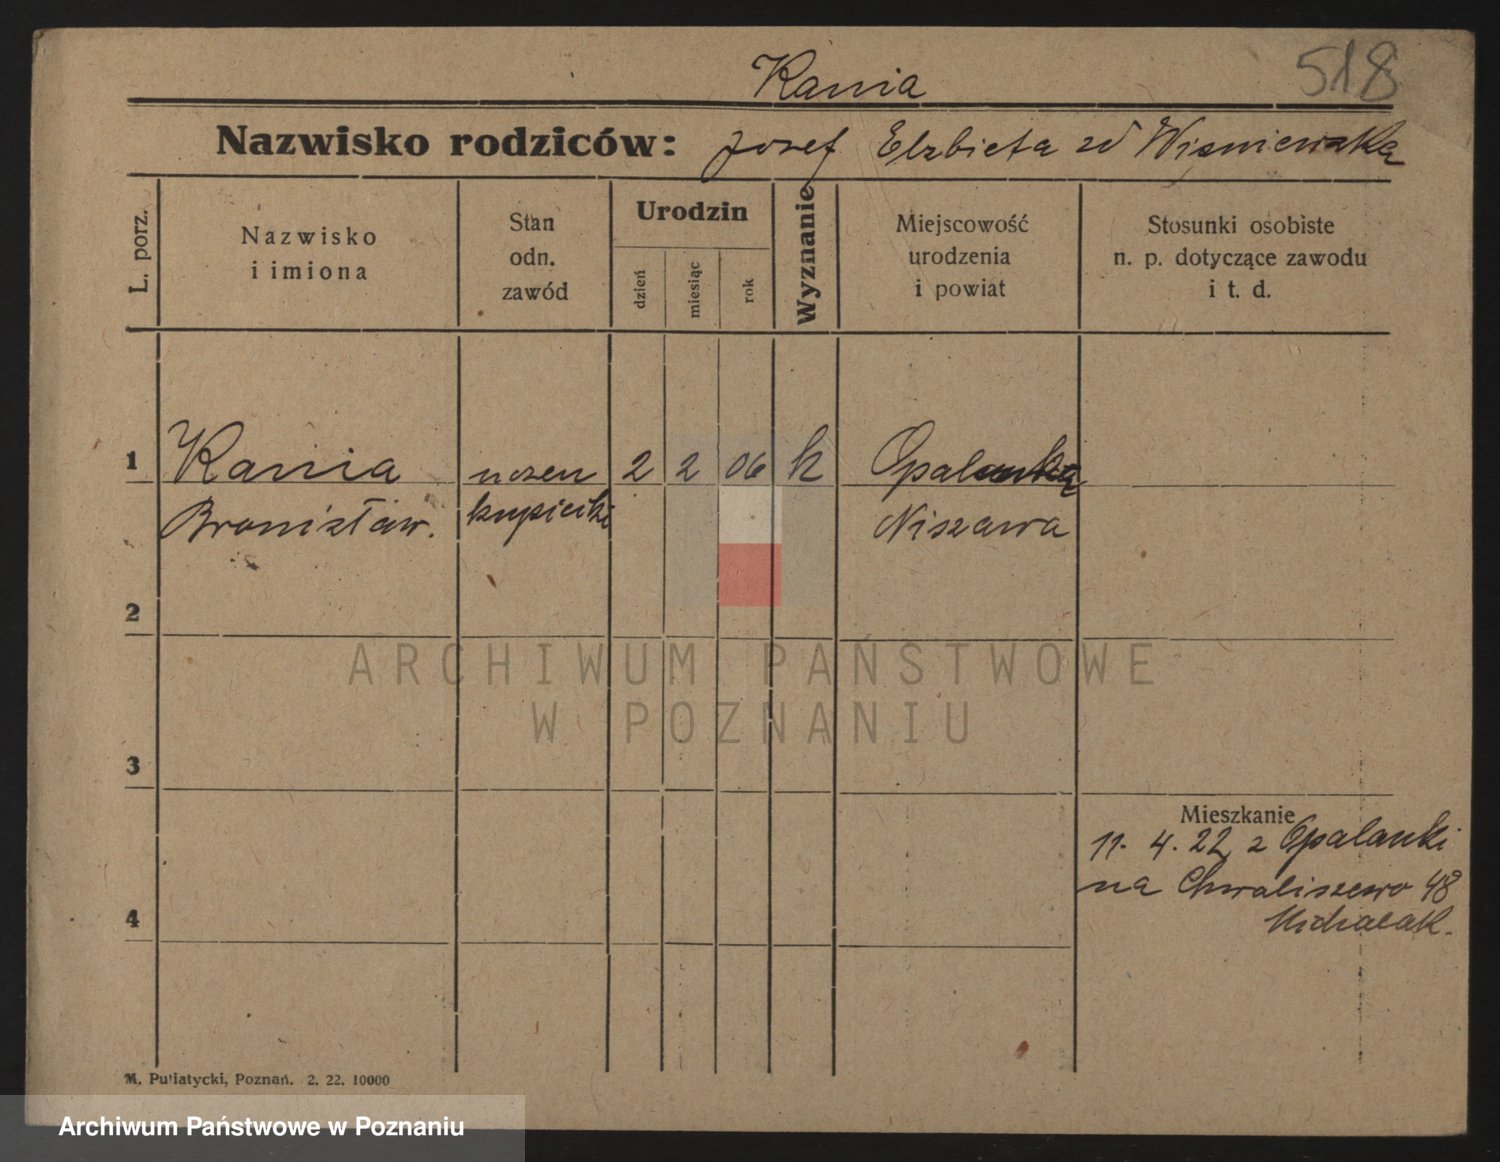 Kania
518
Nazwisko rodziców: Jozef Elzbieta zd Wisniewska
L. porz.
Nazwisko
i imiona
Stan
odn.
zawód
Urodzin
dzień
miesiąc
rok
Wyznanie
Miejscowość
urodzenia
i powiat
Stosunki osobiste
n. p. dotyczące zawodu
i t. d.
1 Kania uczen 2 2 06 k Opalanka
Bronisław. kupiecki Niszawa
2
ARCHIWUM PAŃSTWOWE
W POZNANIU
3
Mieszkanie
11. 4. 22 z Opalanki
na Chwaliszewo 48
Michalak.
4
M. Putiatycki, Poznań. 2. 22. 10000
Archiwum Państwowe w Poznaniu